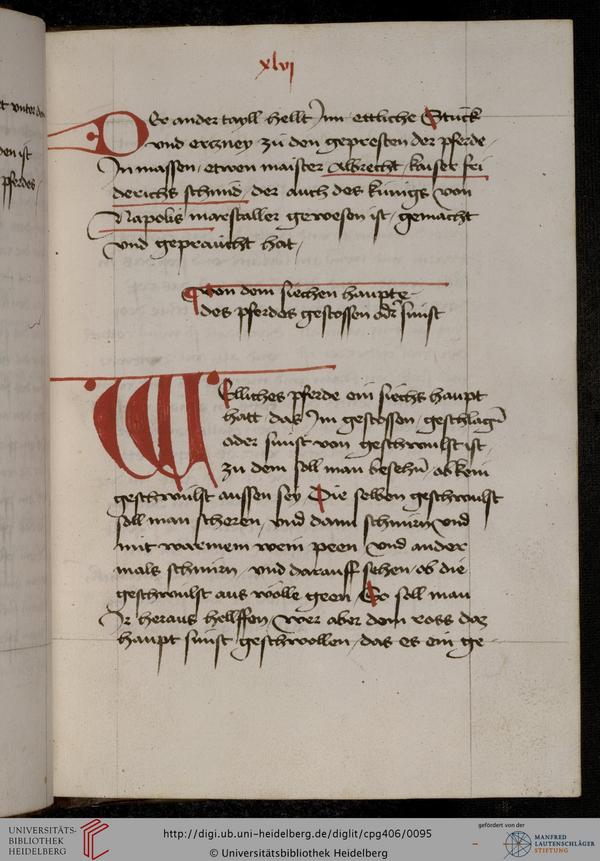 xlvi
Der ander tayll hellt Inn ettliche Stuck
vnd erczney zu den gepresten der pferde
In massen etwen maister Albrecht kaiser fri
derichs schmid der auch des kunigs von
Napolis marstaller gewesen ist gemacht
vnd gepraucht hat
Von dem siechen haupte
des pferdes gestossen oder sunst
Welliches pferde ein siechs haupt
hatt das Im gestossen geschlagen
oder sunst von geschwulst ist
zu dem soll man besehen ob kein
geschwulst aussen sey Die selben geschwulst
soll man scheren vnd dann schmirn vnd
mit warmem wein peen vnd ander
mals schmirn vnd darauff sehen ob die
geschwulst aus wolle geen So soll man
Ir heraus hellffen wer aber dem ross das
haupt sunst geschwollen das es ein ge
UNIVERSITÄTS-
BIBLIOTHEK
HEIDELBERG
http://digi.ub.uni-heidelberg.de/diglit/cpg406/0095
© Universitätsbibliothek Heidelberg
gefördert von der
MANFRED
LAUTENSCHLÄGER
STIFTUNG